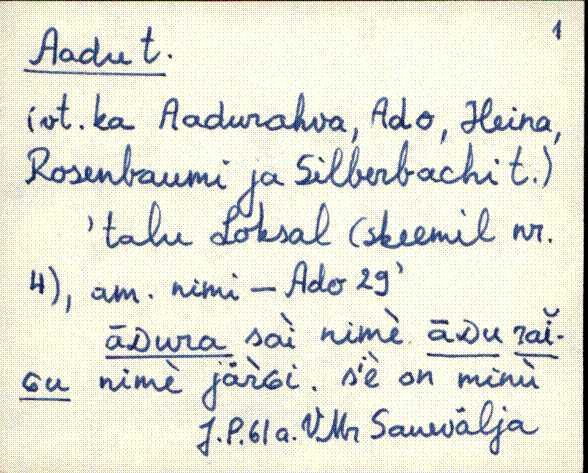 1
Aadu t.
(vt. ka Aadurahva, Ado, Heina,
Rosenbaumi ja Silberbachi t.)
'talu Loksal (skeemil nr.
4), am. nimi – Ado 29'
āDura saì nimè āDu
nimè järGi. s'è on minù
J.P. 61 a. VMr Sauevälja